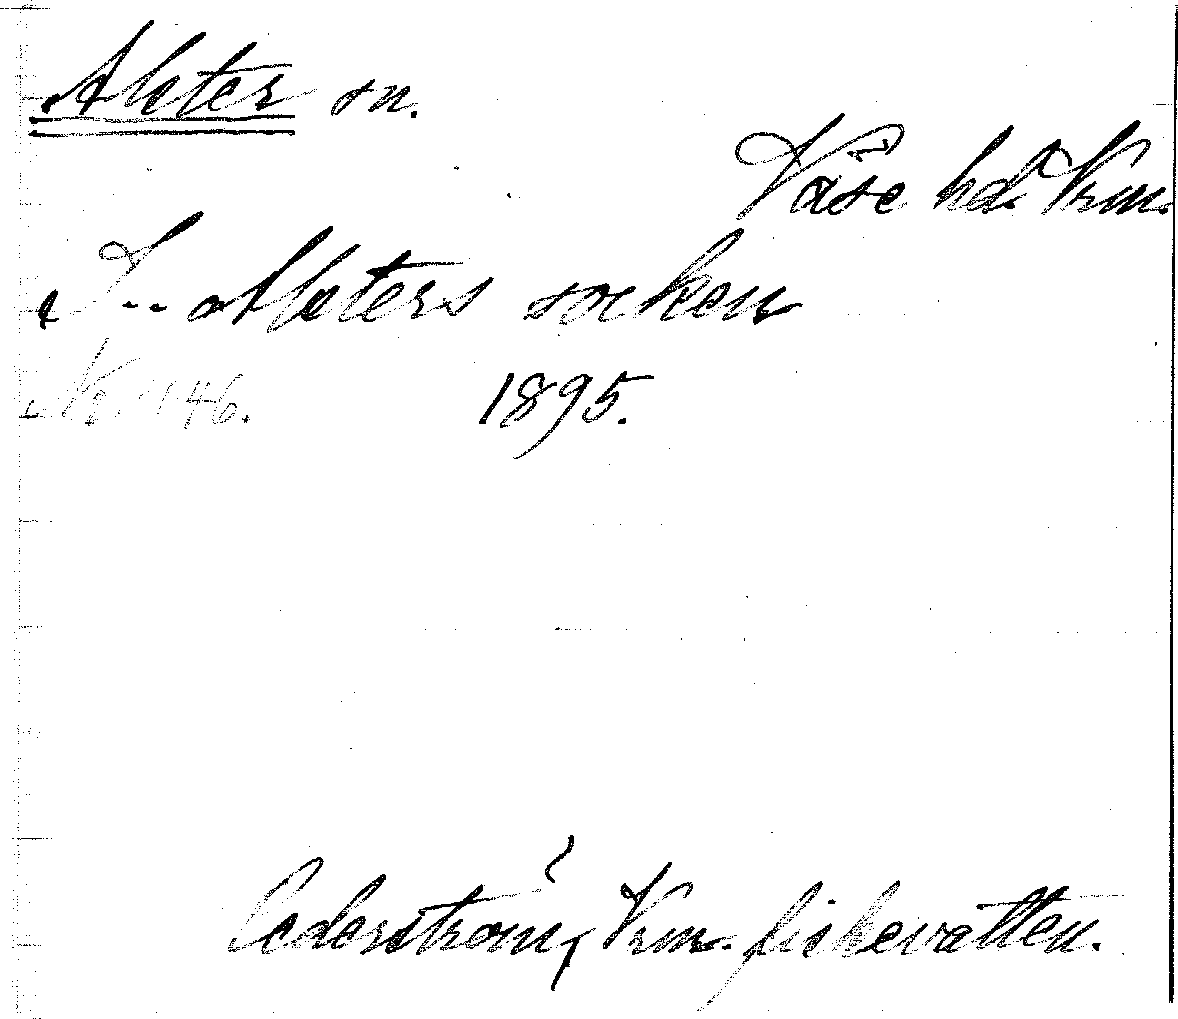 Alster sn.
Väse hd. Vrm.
I -- Alsters socken
Nr. 1146.
1895.
Cederström, Vrm. fiskevatten.